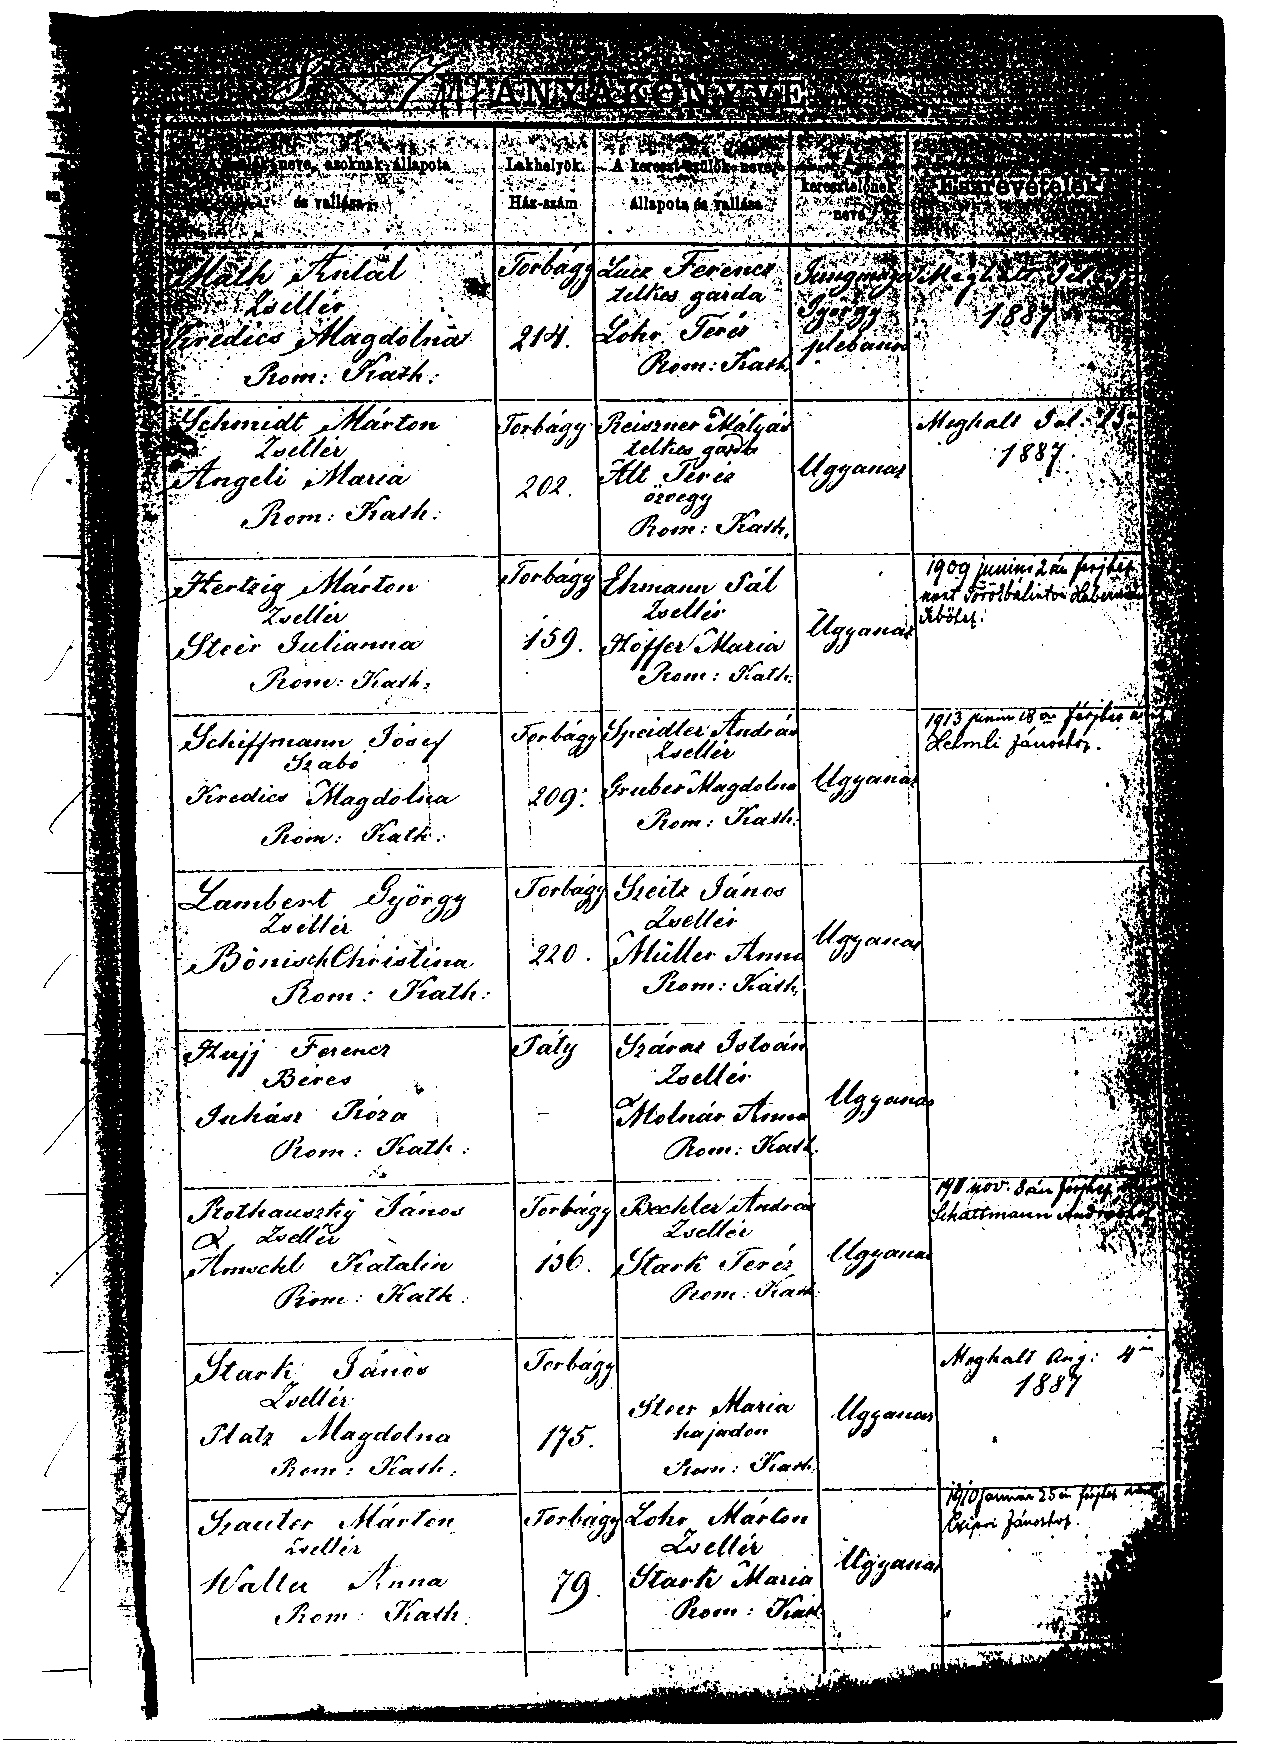 ANYAKÖNYVE
neve, azoknak állapota és vallása
Lakhelyök. Ház-szám
A keresztszülők neve, állapota és vallása
A keresztelőnek neve
Észrevételek
Máth Antal
Zsellér
Kredics Magdolna
Rom: Kath:
Torbágy
214.
Lucz Ferencz
telkes gazda
Lohr Teréz
Rom: Kath.
György
plebanos
Meghalt
1887
Schmidt Márton
Zsellér
Angeli Maria
Rom: Kath:
Torbágy
202.
Reiszner Mátyás
telkes gazda
Alt Teréz
özvegy
Rom: Kath.
Ugyanaz
Meghalt Jul. 13
1887.
Hertzig Márton
Zsellér
Steer Julianna
Rom: Kath:
Torbágy
159.
Ehmann Pál
Zsellér
Höffer Maria
Rom: Kath.
Ugyanaz
1909 junius 2án férjhez
ment Törökbálinton
Schiffmann Jósef
Szabó
Kredics Magdolna
Rom: Kath:
Torbágy
209.
Speidler András
Zsellér
Gruber Magdolna
Rom: Kath.
Ugyanaz
1913 junius 18 án férjhez
Helmli Jánoshoz.
Lambert György
Zsellér
Bönisch Christina
Rom: Kath:
Torbágy
220.
Szeitz János
Zsellér
Müller Anna
Rom: Kath.
Ugyanaz
Hujj Ferencz
Béres
Juhász Róza
Rom: Kath:
Páty
-
Száraz István
Zsellér
Molnár Anna
Rom: Kath.
Ugyanaz
Rothauszky János
Zsellér
Amschl Katalin
Rom: Kath.
Torbágy
136.
Bechler András
Zsellér
Stark Teréz
Rom: Kath
Ugyanaz
1911 nov. 3án férjhez
Schattmann Andráshoz
Stark János
Zsellér
Platz Magdolna
Rom: Kath:
Torbágy
175.
Steer Maria
hajadon
Rom: Kath.
Ugyanaz
Meghalt Aug: 4
1887
Szauter Márton
Zsellér
Walter Anna
Rom: Kath.
Torbágy
79.
Lohr Márton
Zsellér
Stark Maria
Rom: Kath
Ugyanaz
1910 január 25 én férjhez
Jánoshoz.